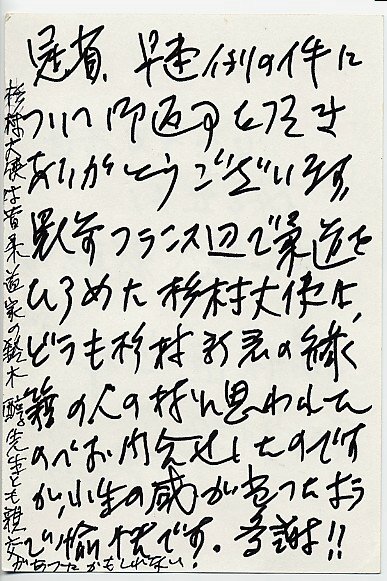 冠省、早速例の件に
ついて御返事を下さり
ありがとうございます。
フランス辺で柔道を
ひろめた杉村大使は、
どうも杉村 君の縁
籍の人の様に思われた
のでお問合せしたのです
が、小生の感が当ったよう
で愉快です。多謝!!
杉村大使は昔柔道家の鈴木 先生とも親交
があったかもしれない!